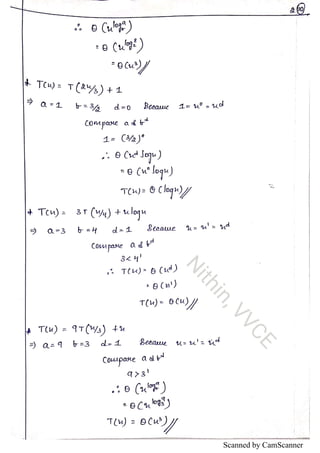 2 10
∴ θ (n^log_b^a)
= θ (n^log_2^8)
= θ(n³)//
* T(n) = T(2n/3) + 1
⇒ a = 1 b = 3/2 d = 0 Because 1 = n⁰ = n^d
Compare a & b^d
1 = (3/2)⁰
∴ θ (n^d logn)
= θ (n⁰ logn)
T(n) = θ (logn)//
* T(n) = 3T(n/4) + nlogn
⇒ a=3 b=4 d=1 Because n = n¹ = n^d
Compare a & b^d
3 < 4¹
∴ T(n) = θ (n^d)
= θ (n¹)
T(n) = θ(n)//
* T(n) = 9T(n/3) + n
⇒ a=9 b=3 d=1 Because n = n¹ = n^d
Compare a & b^d
9 > 3¹
∴ θ (n^log_b^a)
= θ (n^log_3^9)
T(n) = θ(n²)//
Nithin, VVCE
Scanned by CamScanner